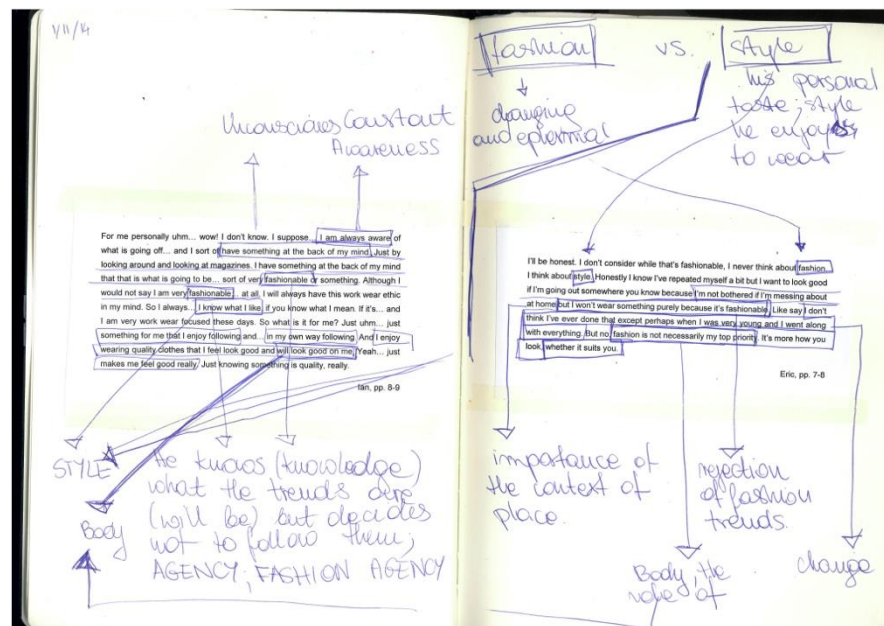 1/11/14
Unconscious Constant
Awareness
For me personally uhm... wow! I don't know. I suppose... I am always aware of
what is going off... and I sort of have something at the back of my mind. Just by
looking around and looking at magazines. I have something at the back of my mind
that that is what is going to be... sort of very fashionable or something. Although I
would not say I am very fashionable at all. I will always have this work wear ethic
in my mind. So I always... I know what I like, if you know what I mean. If it's... and
I am very work wear focused these days. So what is it for me? Just uhm... just
something for me that I enjoy following and... in my own way following. And I enjoy
wearing quality clothes that I feel look good and will look good on me. Yeah... just
makes me feel good really. Just knowing something is quality, really.
Ian, pp. 8-9
STYLE
Body
He knows (knowledge)
what the trends are
(will be) but decides
not to follow them;
AGENCY; FASHION AGENCY
fashion vs. style
changing
and ephermal
his personal
taste; style
he enjoys
to wear
I'll be honest. I don't consider while that's fashionable, I never think about fashion.
I think about style. Honestly I know I've repeated myself a bit but I want to look good
if I'm going out somewhere you know because I'm not bothered if I'm messing about
at home but I won't wear something purely because it's fashionable. Like say I don't
think I've ever done that except perhaps when I was very young and I went along
with everything. But no, fashion is not necessarily my top priority. It's more how you
look, whether it suits you.
Eric, pp. 7-8
importance of
the context of
place.
rejection
of fashion
trends.
Body, the
role of
change